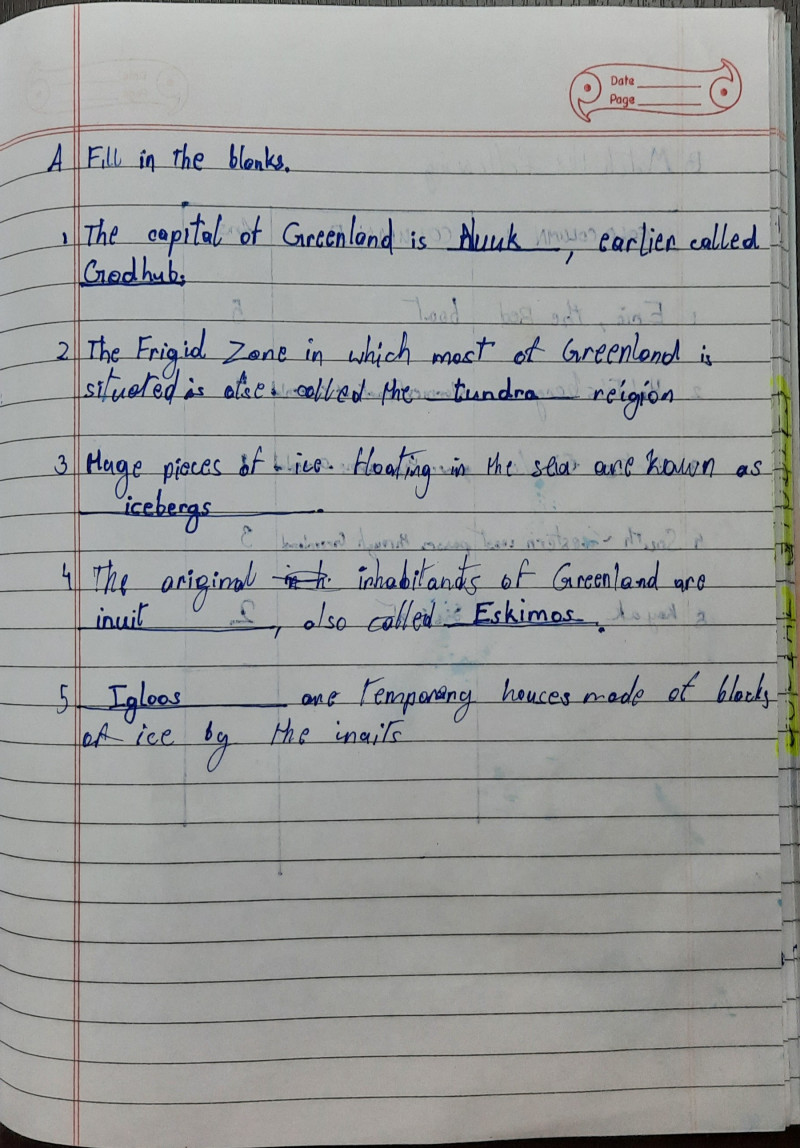 Date
Page
A Fill in the blanks.
1 The capital of Greenland is Nuuk, earlier called
Godhub.
2 The Frigid Zone in which most of Greenland is
situated is also called the tundra reigion
3 Huge pieces of ice floating in the sea are kawn as
icebergs.
4 The original inhabitands of Greenland are
inuit, also called Eskimos.
5 Igloos are Temporary houces made of blocks
of ice by the inuits